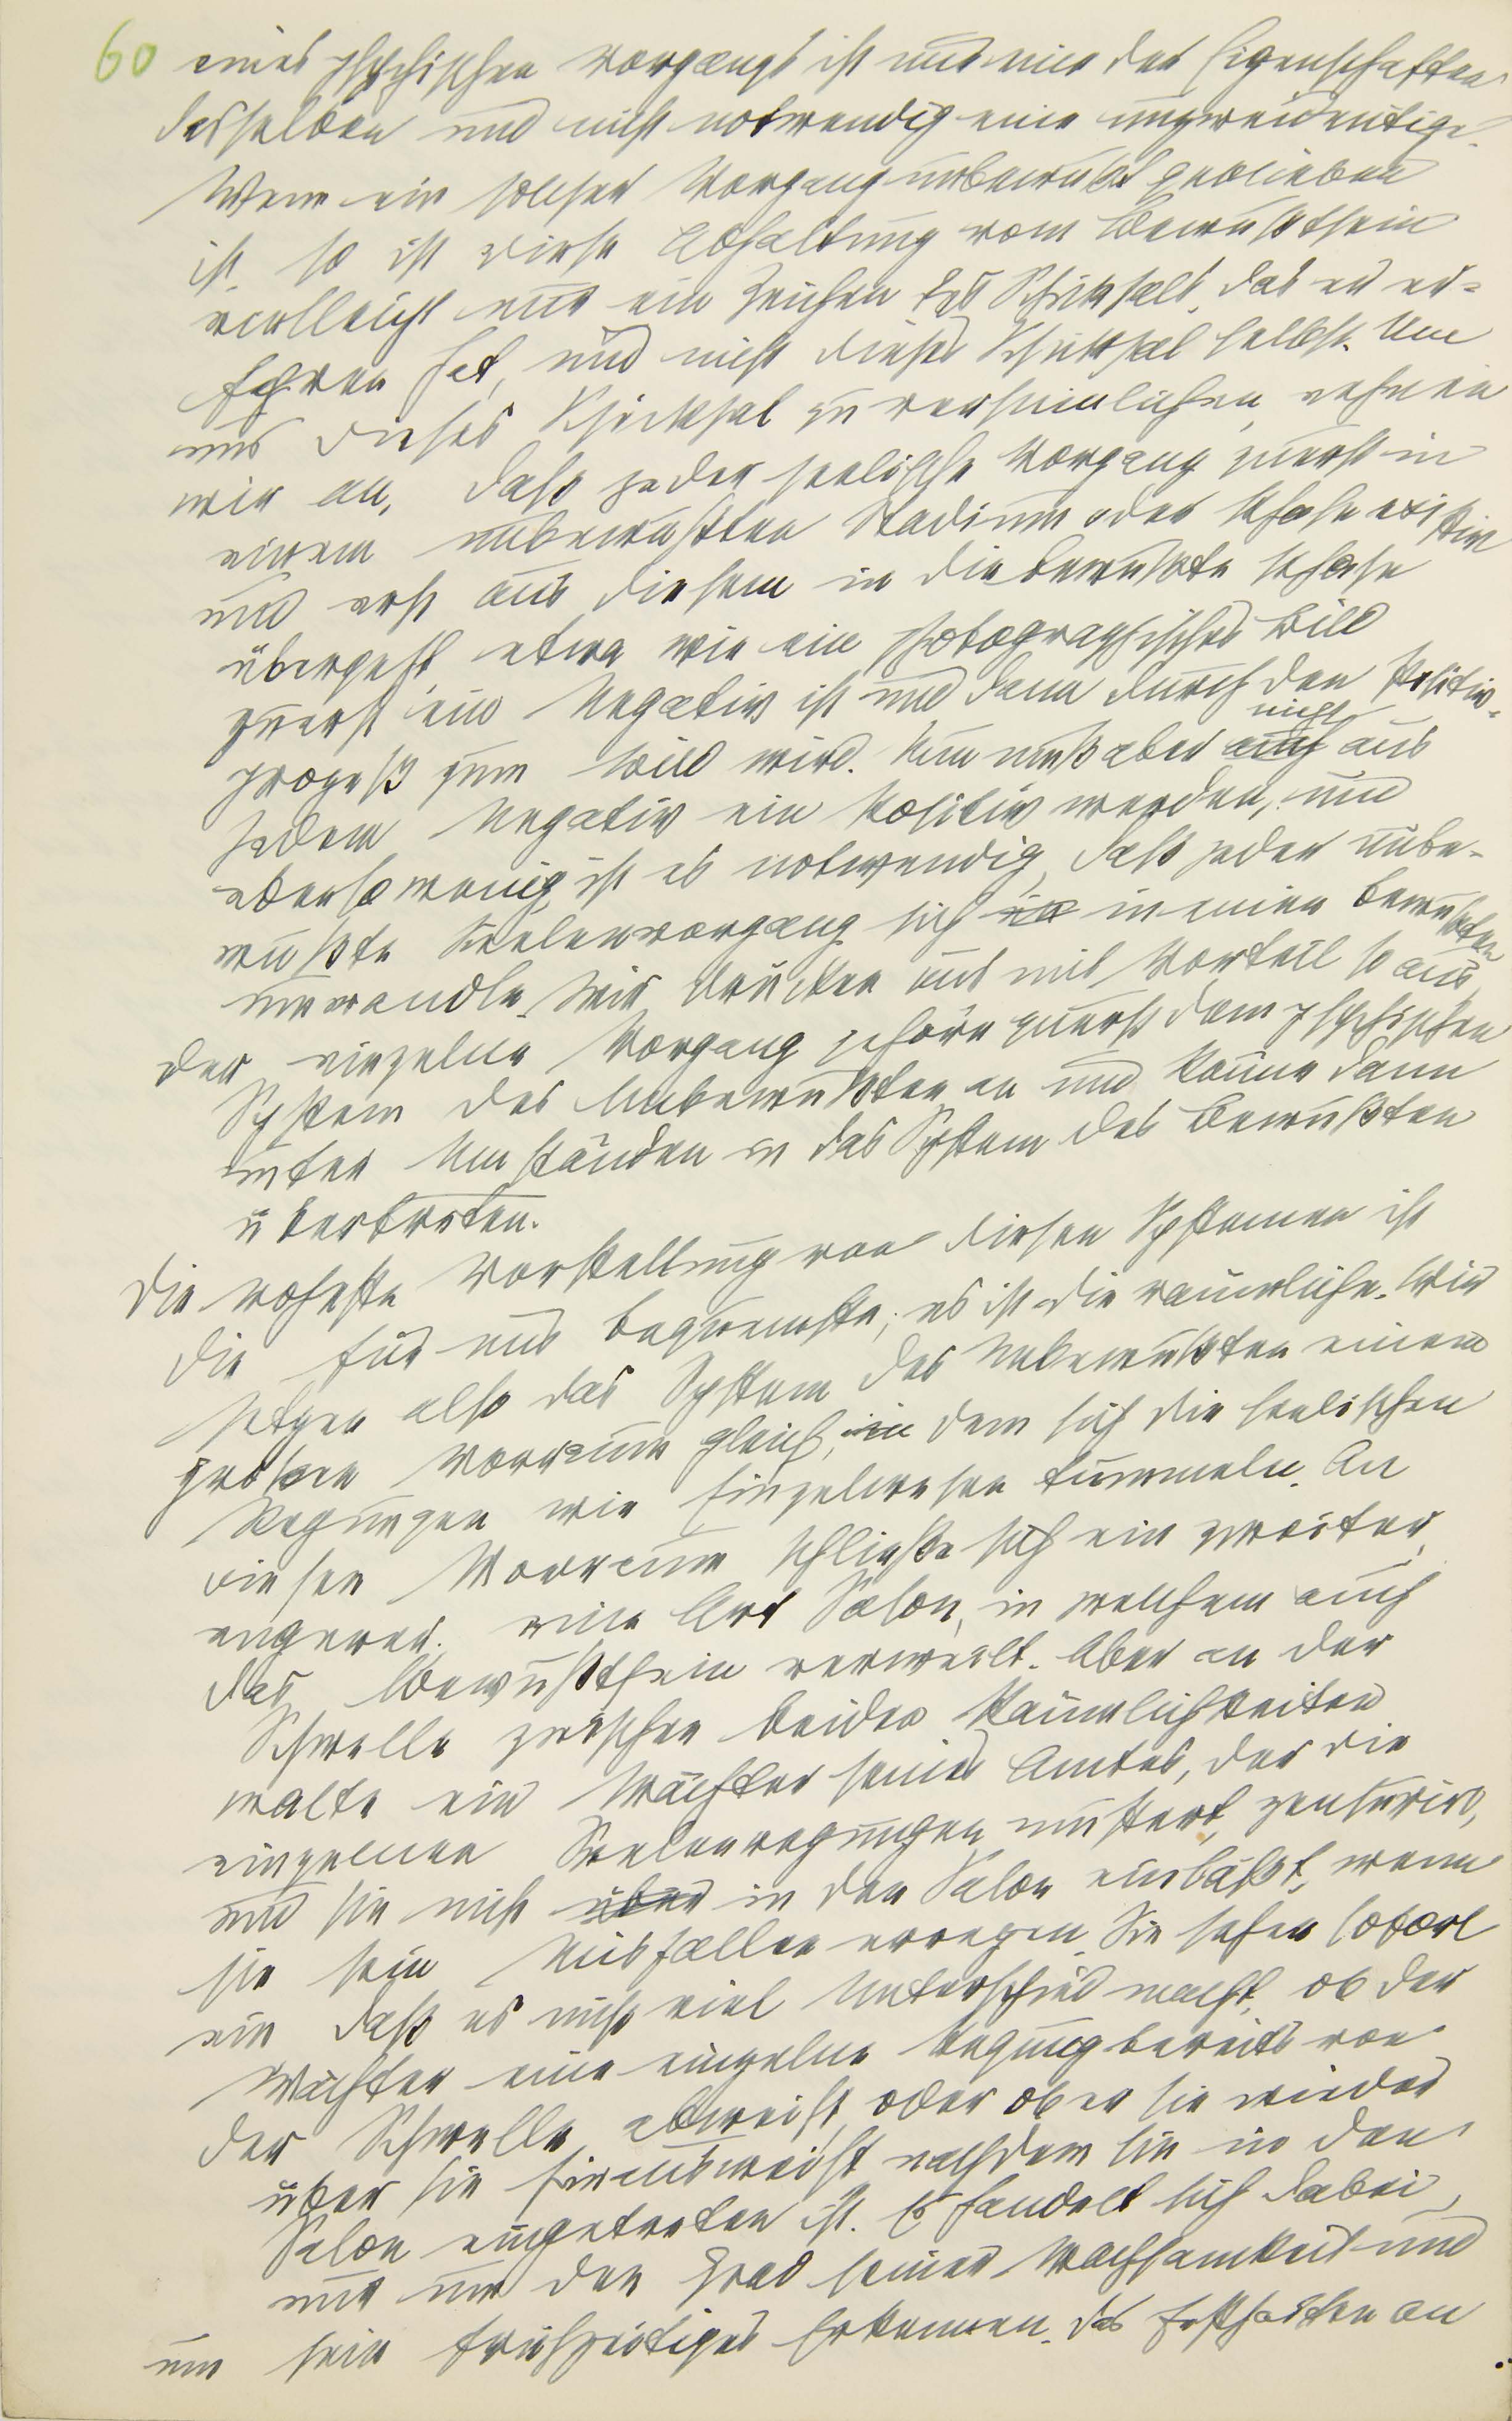 60 eines psychischen Vorgangs ist nur eine der Eigenschaften
desselben und nicht notwendig eine unzweideutige.
Wenn ein solcher Vorgang unbewußt geblieben
ist, so ist diese Abhaltung vom Bewußtsein
vielleicht nur ein Zeichen des Schicksals, das er er-
fahren hat, und nicht dieses Schicksal selbst. Um
uns dieses Schicksal zu versinnlichen, nehmen
wir an, daß jeder seelische Vorgang zuerst in
einem unbewußten Stadium oder Phase existire
und erst aus diesem in die bewußte Phase
übergeht, etwa wie ein photographisches Bild
zuerst ein Negativ ist und dann durch den Positiv-
prozeß zum Bild wird. Nun muß aber nicht aus
jedem Negativ ein Positiv werden, und
ebensowenig ist es notwendig, daß jeder unbe-
wußte Seelenvorgang sich in in einen bewußten
umwandle. Wir drücken uns mit Vorteil so aus,
der einzelne Vorgang gehöre zuerst dem psychischen
System des Unbewußten an und könne dann
unter Umständen in das System des Bewußten
übertreten.
Die roheste Vorstellung von diesen Systemen ist
die für uns bequemste; es ist die räumliche. Wir
setzen also das System des Unbewußten einem
großen Vorraum gleich, in dem sich die seelischen
Regungen wie Einzelwesen tummeln. An
diesen Vorraum schließe sich ein zweiter,
engerer, eine Art Salon, in welchem auch
das Bewußtsein verweilt. Aber an der
Schwelle zwischen beiden Räumlichkeiten
walte ein Wächter seines Amtes, der die
einzelnen Seelenregungen mustert, zensurirt,
und sie nicht über in den Salon einläßt, wenn
sie sein Mißfallen erregen. Sie sehen sofort
ein daß es nicht viel Unterschied macht, ob der
Wächter eine einzelne Regung bereits von
der Schwelle abweist, oder ob er sie wieder
über sie hinausweist, nachdem sie in den
Salon eingetreten ist. Es handelt sich dabei
nur um den Grad seiner Wachsamkeit und
um sein frühzeitiges Erkennen. Das Festhalten an